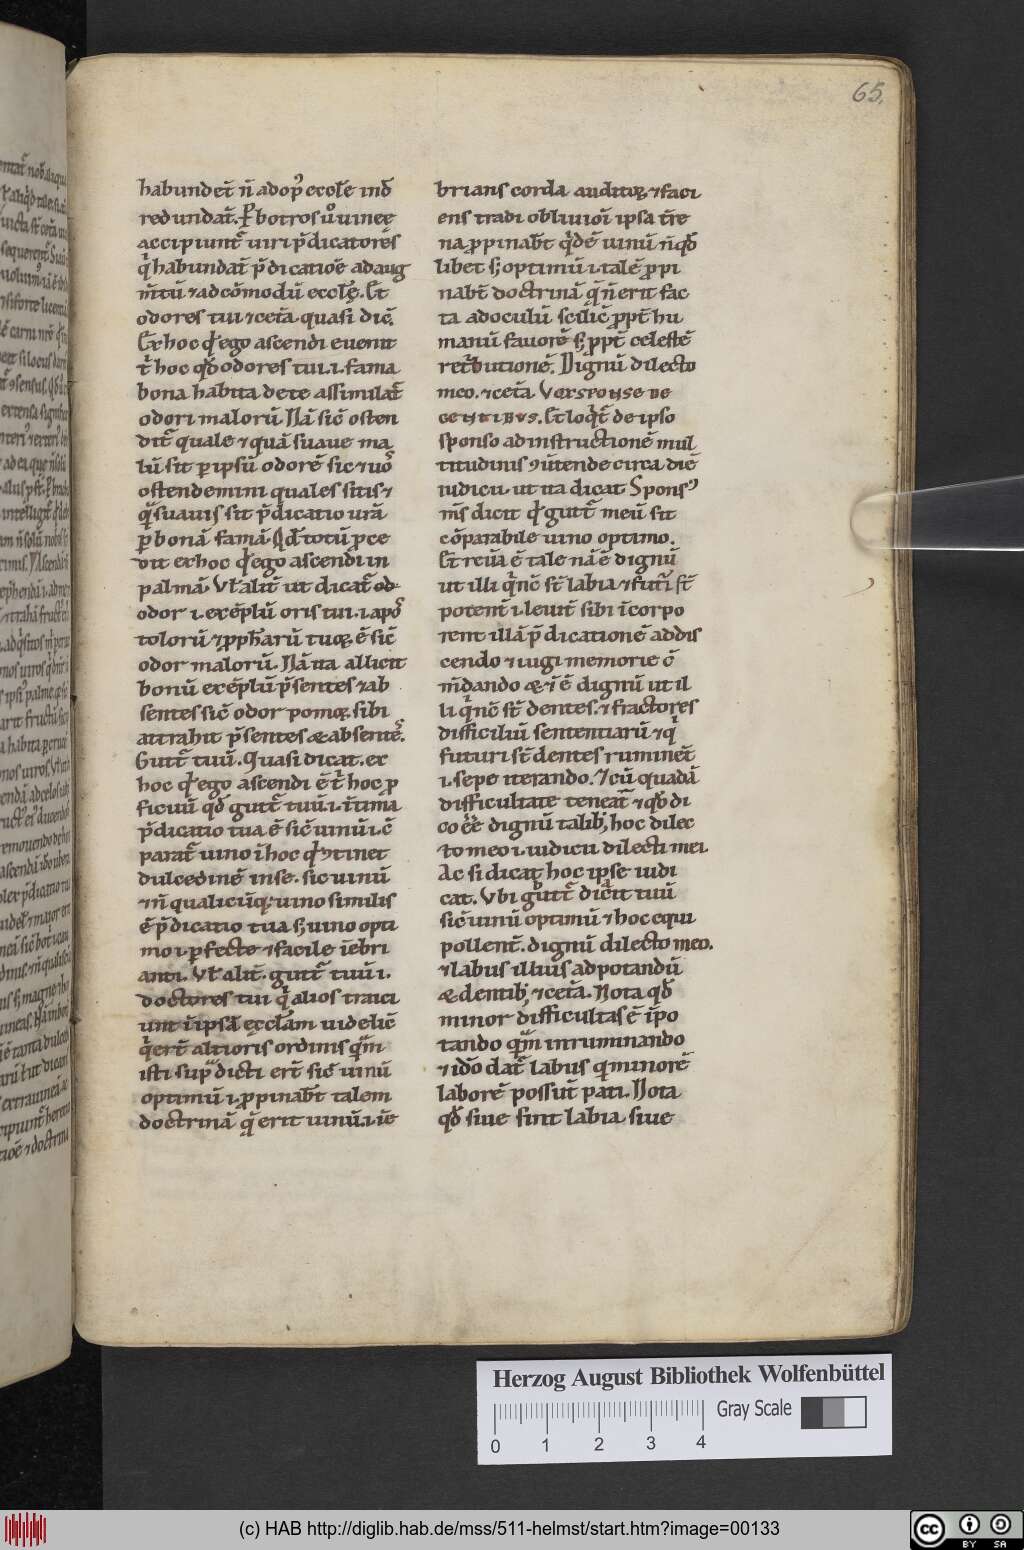 65.
habundet̄ n̄ ad op̄ꝰ eccłe ind̄
redundat̄. P̲ botros u̾o uineę
accipiunt̄ uiri p̄dicatores
q̄ habundat̄ p̄dicatiōe ad aug
m̄tū ⁊ ad cōmodū eccłę. Et
odores tui ⁊ cet̄a quasi dic̄.
Ex hoc qd̵ ego ascendi euenit
t̄ hoc qd̵ odores tui .i. fama
bona habita de te assimilat̄
odori malorū. Nā sic̄ osten
dit̄ quale ⁊ quā suaue ma
lū sit ꝑ ipsū odorē sic ⁊ uo᷒
ostendemini quales sitis ⁊
q̄ suauis sit p̄dicatio urā
ꝑ bonā famā. Qd̵ totū ꝓce
dit ex hoc qd̵ ego ascendi in
palmā. Vł alit̄ ut dicat̄ od
odor .i. exēplū oris tui .i. apo᷒
tolorū ⁊ ꝓpħarū tuoꝝ ē sic̄
odor malorū. Nā ita allicit
bonū exēplū p̄sentes ⁊ ab
sentes sic̄ odor pomoꝝ sibi
attrahit p̄sentes & absente᷒.
Gutt̄ tuū. Quasi dicat. ex
hoc qd̵ ego ascendi ē t̄ hoc ꝓ
ficuū qd̵ gutt̄ tuū .i. ītima
p̄dicatio tua ē sic̄ uinū .i. c̄
parat̄ uino ī hoc qd̵ ꝯtinet
dulcedinē in se. sic uinū
⁊ n̄ qualicūqꝫ uino similis
ē p̄dicatio tua sꝫ uino opti
mo .i. ꝑfecte ⁊ facile īebri
anti. Vł alit̄. gutt̄ tuū .i.
doctores tui q̄ alios traici
unt ī ipsā eccłam uidelic̄
q̄ ert̄ altioris ordinis q̄m
isti sup̄dicti ert̄ sic̄ uinū
optimū .i. ꝓpinabt̄ talem
doctrinā q̄ erit uinū .i. īe
brians corda auditoꝝ ⁊ faci
ens tradi obliuioī ipsa t̄re
na ꝓpinabt̄ qd̵ē uinū n̄ qd̵
libet sꝫ optimū .i. talē ꝓpi
nabt̄ doctrinā q̄ n̄ erit fac
ta ad oculū scilic̄ ꝓpt̄ hu
manū fauorē sꝫ ꝓpt̄ celestē
ret̄butionē. Dignū dilecto
meo. ⁊ cet̄a. Vox sponse de
gentibus. Et loqt̄ de ipso
sponso ad instructionē mul
titudinis ꝯūtende circa diē
iudicii. ut ita dicat Sponsꝰ
m̄s dicit qd̵ gutt̄ meū sit
cōparabile uino optimo.
Et reūa ē tale nā ē dignū
ut illi q̄ nc̄ st̄ labia ⁊ futī st̄
potent̄ .i. leuit̄ sibi īcorpo
rent illā p̄dicationē addis
cendo ⁊ iugi memorie c̄
m̄dando & ī ē dignū ut il
li q̄ nc̄ st̄ dentes .i. fractores
difficiliū sententiarū ⁊ q̄
futuri st̄ dentes ruminet̄
.i. sepe iterando. ⁊ cū quadā
difficultate teneāt ⁊ qd̵ di
co ēē dignū talibꝫ hoc dilec
to meo .i. iudicii dilecti mei
Ac si dicat hoc ipse iudi
cat. Vbi gutt̄ dicit tuū
sic̄ uinū optimū ⁊ hoc equi
pollent̄. dignū dilecto meo.
⁊ labiis illius ad potandū
& dentibꝫ ⁊ cet̄a. Nota qd̵
minor difficultas ē ī po
tando q̄m in ruminando
⁊ idō dat̄ labiis q̄ minorē
laborē possūt pati. Nota
qd̵ siue sint labia siue
Herzog August Bibliothek Wolfenbüttel
Gray Scale
0 1 2 3 4
(c) HAB http://diglib.hab.de/mss/511-helmst/start.htm?image=00133
cc BY SA